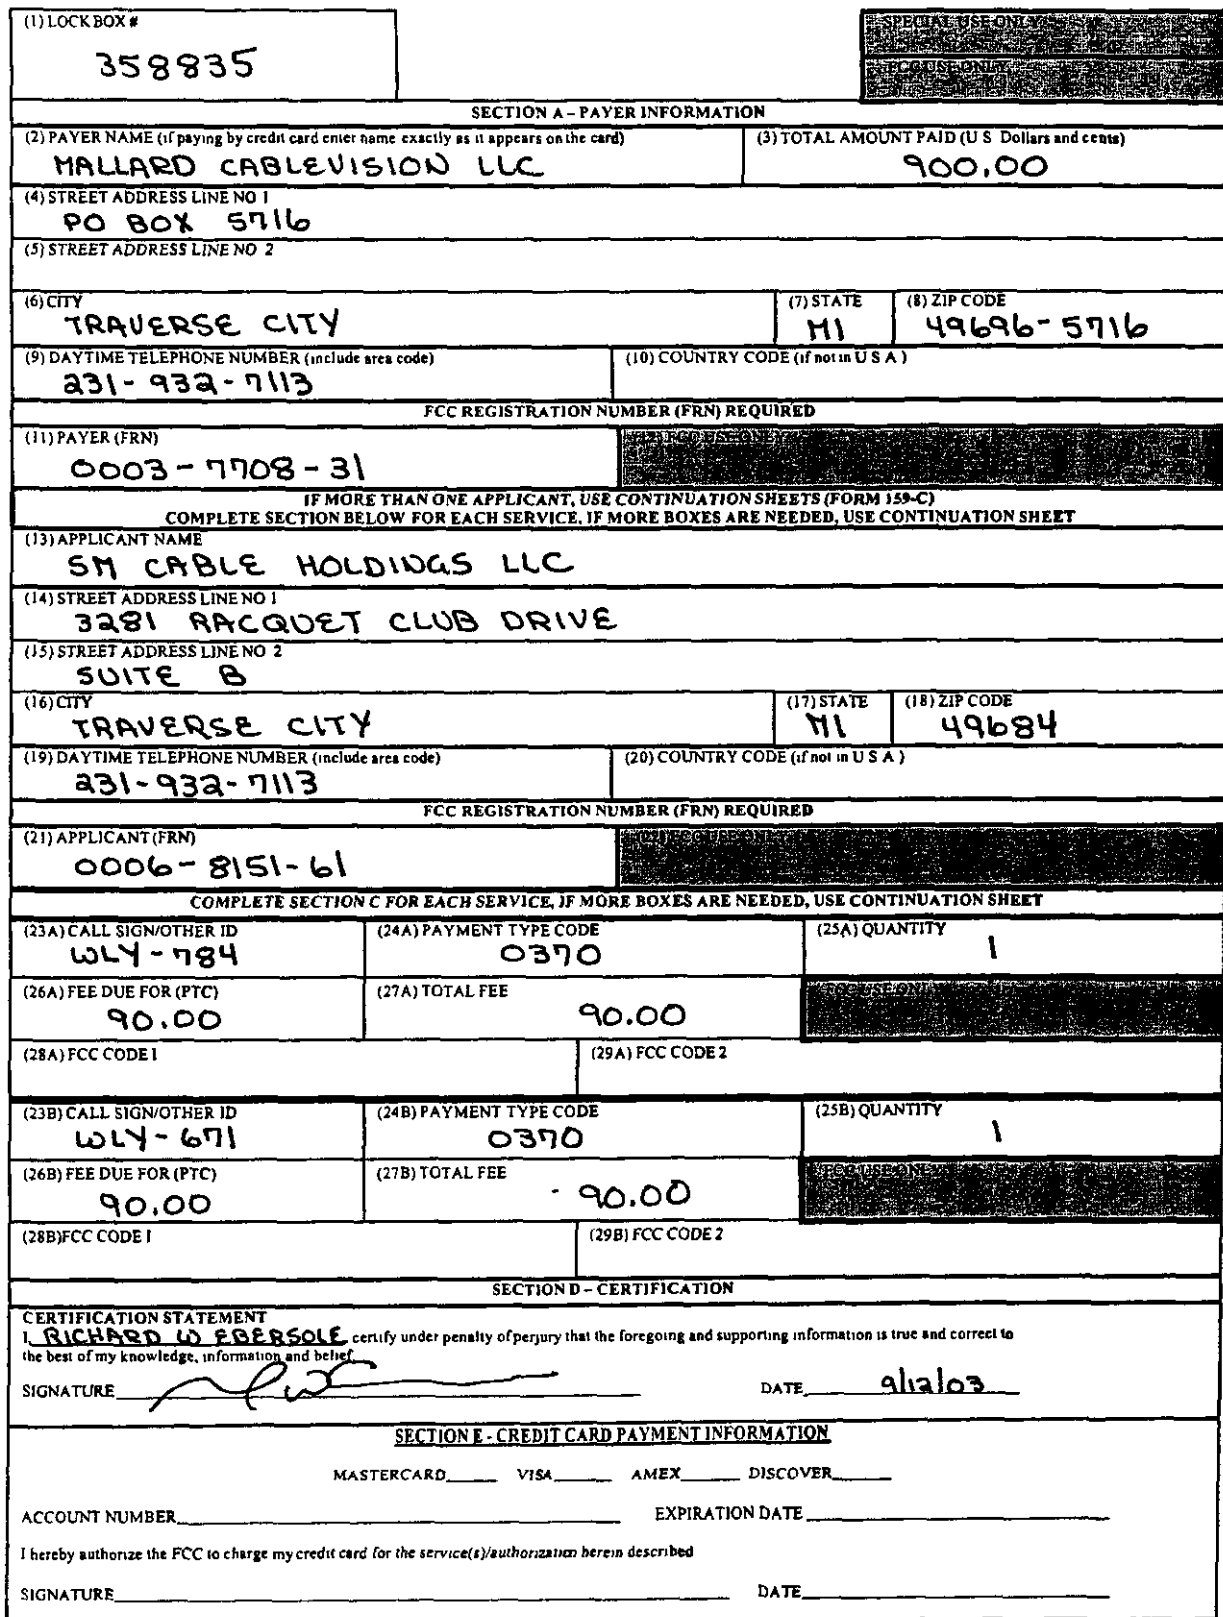 (1) LOCK BOX #
358835
SPECIAL USE ONLY
FCC USE ONLY
SECTION A – PAYER INFORMATION
(2) PAYER NAME (if paying by credit card enter name exactly as it appears on the card)
(3) TOTAL AMOUNT PAID (U S Dollars and cents)
MALLARD CABLEVISION LLC
900.00
(4) STREET ADDRESS LINE NO 1
PO BOX 5716
(5) STREET ADDRESS LINE NO 2
(6) CITY
(7) STATE
(8) ZIP CODE
TRAVERSE CITY
MI
49696-5716
(9) DAYTIME TELEPHONE NUMBER (include area code)
(10) COUNTRY CODE (if not in U S A )
231-932-7113
FCC REGISTRATION NUMBER (FRN) REQUIRED
(11) PAYER (FRN)
(12) FCC USE ONLY
0003-7708-31
IF MORE THAN ONE APPLICANT, USE CONTINUATION SHEETS (FORM 159-C)
COMPLETE SECTION BELOW FOR EACH SERVICE, IF MORE BOXES ARE NEEDED, USE CONTINUATION SHEET
(13) APPLICANT NAME
SM CABLE HOLDINGS LLC
(14) STREET ADDRESS LINE NO 1
3281 RACQUET CLUB DRIVE
(15) STREET ADDRESS LINE NO 2
SUITE B
(16) CITY
(17) STATE
(18) ZIP CODE
TRAVERSE CITY
MI
49684
(19) DAYTIME TELEPHONE NUMBER (include area code)
(20) COUNTRY CODE (if not in U S A )
231-932-7113
FCC REGISTRATION NUMBER (FRN) REQUIRED
(21) APPLICANT (FRN)
(22) FCC USE ONLY
0006-8151-61
COMPLETE SECTION C FOR EACH SERVICE, IF MORE BOXES ARE NEEDED, USE CONTINUATION SHEET
(23A) CALL SIGN/OTHER ID
(24A) PAYMENT TYPE CODE
(25A) QUANTITY
WLY-784
0370
1
(26A) FEE DUE FOR (PTC)
(27A) TOTAL FEE
FCC USE ONLY
90.00
90.00
(28A) FCC CODE 1
(29A) FCC CODE 2
(23B) CALL SIGN/OTHER ID
(24B) PAYMENT TYPE CODE
(25B) QUANTITY
WLY-671
0370
1
(26B) FEE DUE FOR (PTC)
(27B) TOTAL FEE
FCC USE ONLY
90.00
90.00
(28B)FCC CODE 1
(29B) FCC CODE 2
SECTION D – CERTIFICATION
CERTIFICATION STATEMENT
I, RICHARD W EBERSOLE certify under penalty of perjury that the foregoing and supporting information is true and correct to
the best of my knowledge, information and belief
SIGNATURE
DATE 9/12/03
SECTION E - CREDIT CARD PAYMENT INFORMATION
MASTERCARD VISA AMEX DISCOVER
ACCOUNT NUMBER
EXPIRATION DATE
I hereby authorize the FCC to charge my credit card for the service(s)/authorization herein described
SIGNATURE
DATE